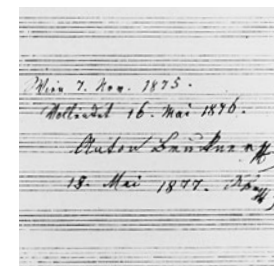 Wien 7. Nov. 1875.
Vollendet 16. Mai 1876.
Anton Bruckner
18. Mai 1877.